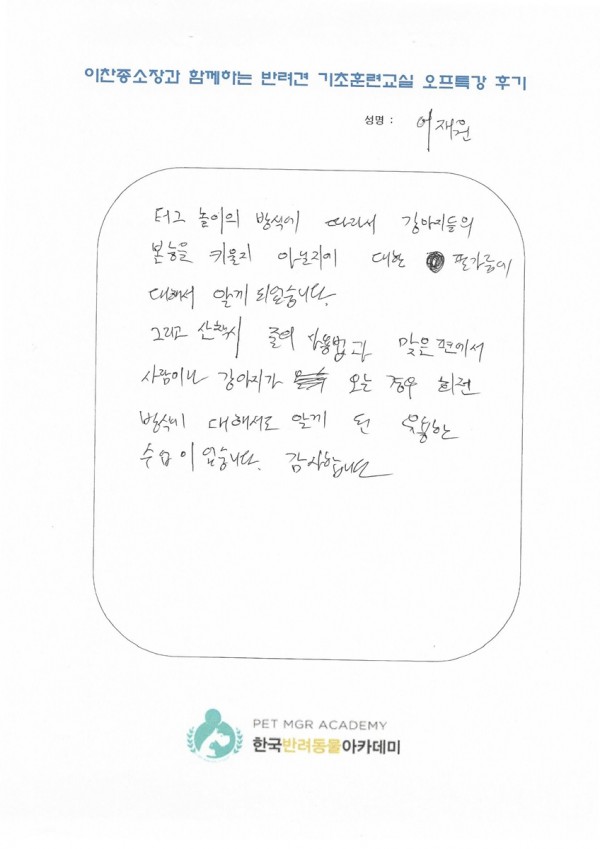 이찬종소장과 함께하는 반려견 기초훈련교실 오프특강 후기
성명 : 이재원
터그 놀이의 방식에 따라서 강아지들의
본능을 키울지 아닌지에 대한 판가름에
대해서 알게 되었습니다.
그리고 산책시 줄의 사용법과 맞은편에서
사람이나 강아지가 오는 경우 회전
방식에 대해서도 알게 된 유용한
수업이었습니다. 감사합니다
PET MGR ACADEMY
한국반려동물아카데미